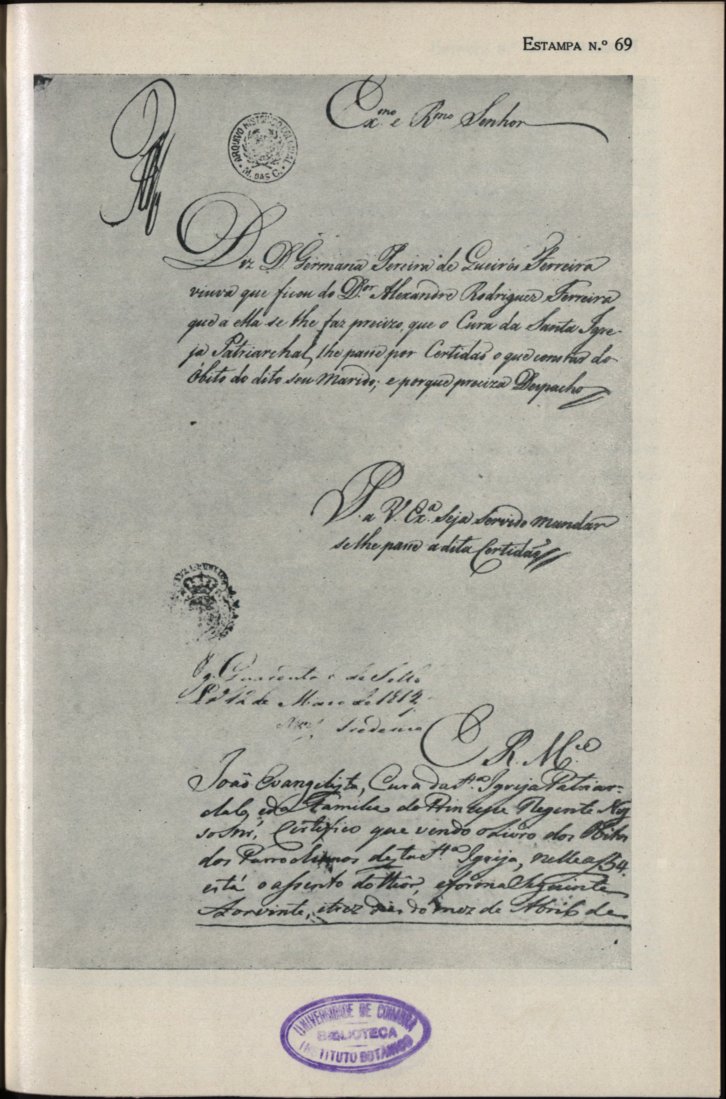 ESTAMPA N.º 69
Exmo e Rmo Senhor
ARQUIVO HISTORICO COLONIAL
M. DAS C.
Diz D. Germana Pereira de Queirós Ferreira
viuva que ficou do Dor Alexandre Rodriguez Ferreira
que a ella se lhe faz precizo, que o Cura da Santa Igre-
ja Patriarchal, lhe passe por Certidaõ o que constar do
Obito do dito seu Marido; e porque preciza Despacho
P. a V. Exa. seja servido mandar
se lhe passe a dita Certidaõ
Quarenta rs. de Sello
12 de Maio de 1812
E R. Mce
João Evangelista, Cura da Sta. Igreja Patriar-
chal, e da Familia do Principe Regente Nos-
so Snr, Certifico que vendo o Livro dos Obitos
dos Parrochianos desta Sta Igreja, nelle a f 54.
está o assento do theor, e forma Seguinte
Aos vinte, e trez dias do mez de Abril de
UNIVERSIDADE DE COIMBRA
BIBLIOTECA
INSTITUTO BOTÂNICO